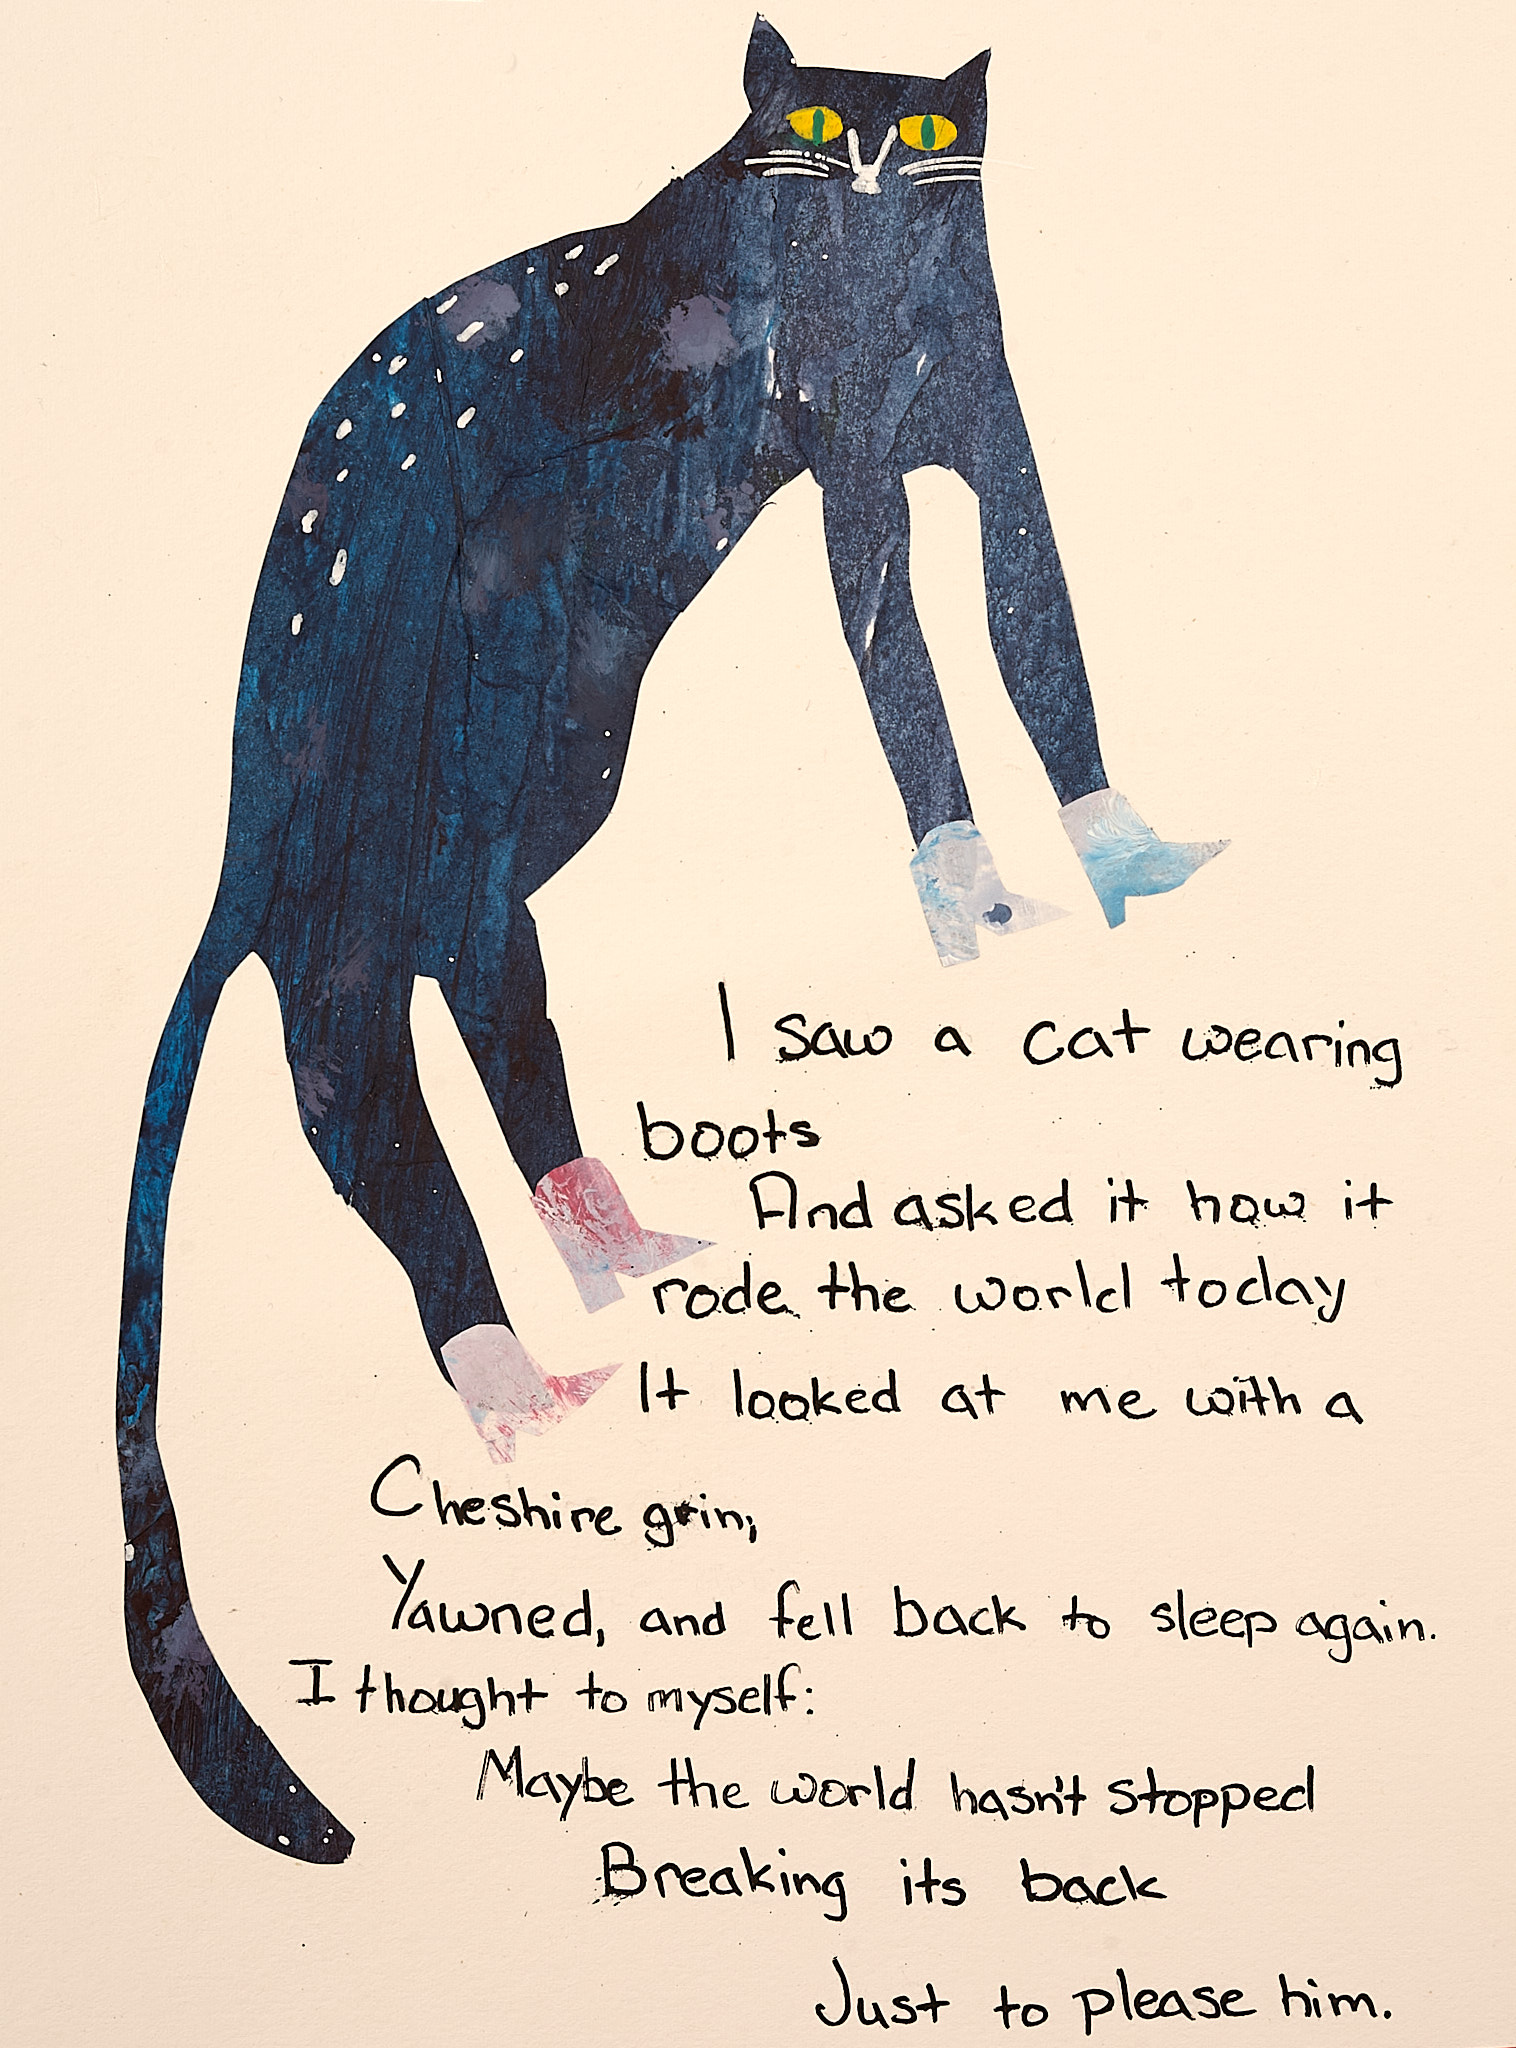 I saw a cat wearing
boots
And asked it how it
rode the world today
It looked at me with a
Cheshire grin;
Yawned, and fell back to sleep again.
I thought to myself:
Maybe the world hasn't stopped
Breaking its back
Just to please him.